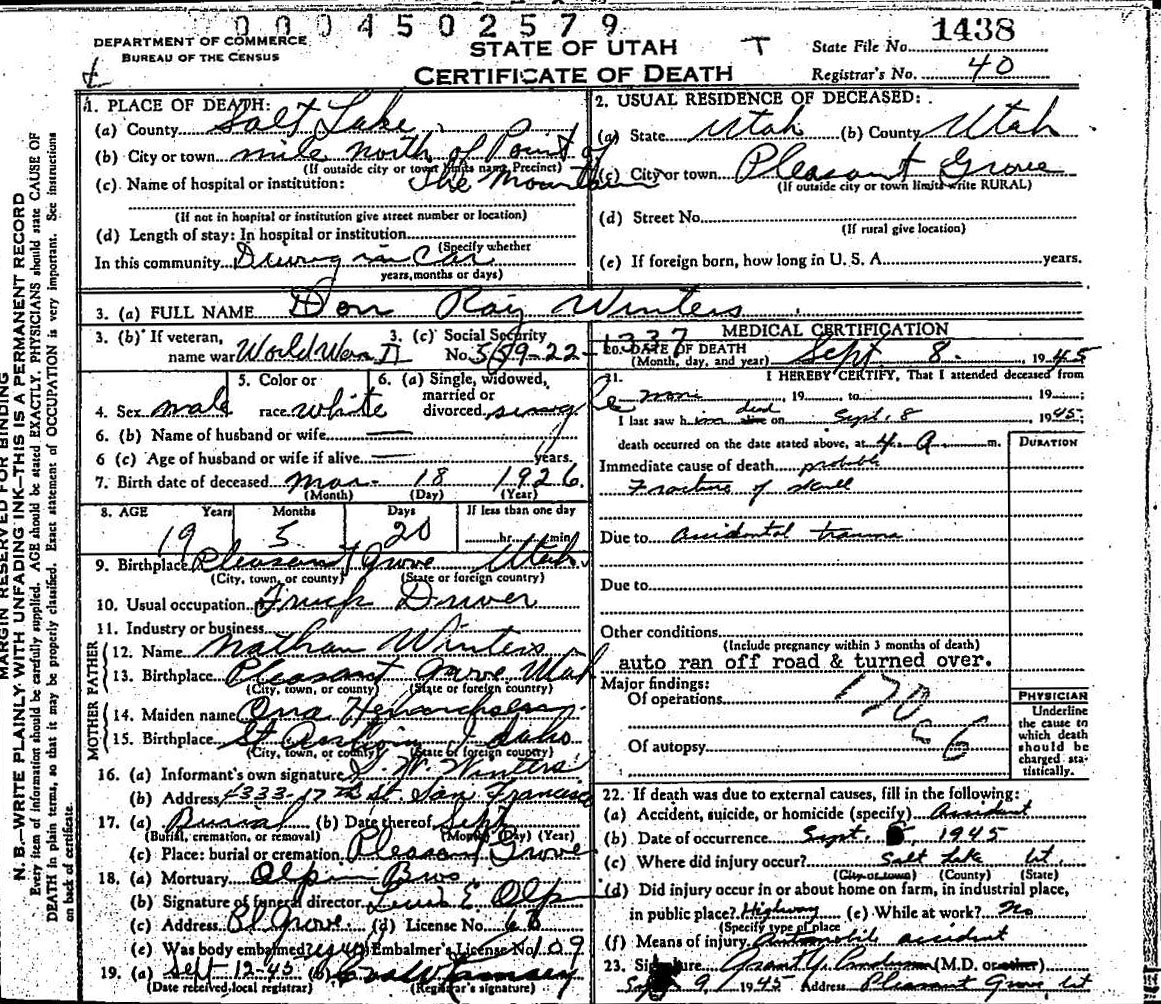 0004502579
DEPARTMENT OF COMMERCE
BUREAU OF THE CENSUS
STATE OF UTAH
T
CERTIFICATE OF DEATH
State File No. 1438
Registrar's No. 40
MARGIN RESERVED FOR BINDING
N. B.—WRITE PLAINLY WITH UNFADING INK—THIS IS A PERMANENT RECORD
Every item of information should be carefully supplied. AGE should be stated EXACTLY. PHYSICIANS should state CAUSE OF
DEATH in plain terms, so that it may be properly classified. Exact statement of OCCUPATION is very important. See instructions
on back of certificate.
1. PLACE OF DEATH:
(a) County Salt Lake
(b) City or town mile north of Point of
(If outside city or town limits name Precinct)
(c) Name of hospital or institution: The Mountain
(If not in hospital or institution give street number or location)
(d) Length of stay: In hospital or institution
(Specify whether
In this community Driving in Car
years, months or days)
2. USUAL RESIDENCE OF DECEASED:
(a) State Utah (b) County Utah
(c) City or town Pleasant Grove
(If outside city or town limits write RURAL)
(d) Street No.
(If rural give location)
(e) If foreign born, how long in U. S. A. years.
3. (a) FULL NAME Don Ray Winters
3. (b) If veteran, name war World War II
3. (c) Social Security No. 559-22-1337
4. Sex male
5. Color or race white
6. (a) Single, widowed, married or divorced, single
6. (b) Name of husband or wife —
6 (c) Age of husband or wife if alive — years.
7. Birth date of deceased Mar. 18 1926
(Month) (Day) (Year)
8. AGE Years Months Days If less than one day
19 5 20 hr. min.
9. Birthplace Pleasant Grove Utah
(City, town, or county) (State or foreign country)
10. Usual occupation Truck Driver
11. Industry or business
FATHER
12. Name Nathan Winters
13. Birthplace Pleasant Grove Utah
(City, town, or county) (State or foreign country)
MOTHER
14. Maiden name Ona
15. Birthplace St Anthony Idaho
(City, town, or county) (State or foreign country)
16. (a) Informant's own signature Winters
(b) Address 4333-17th St. San Francisco
17. (a) Burial (b) Date thereof Sept
(Burial, cremation, or removal) (Month) (Day) (Year)
(c) Place: burial or cremation Pleasant Grove
18. (a) Mortuary Olpin Bros
(b) Signature of funeral director Olpin
(c) Address Pl Grove (d) License No.
(e) Was body embalmed? yes Embalmer's License No. 109
19. (a) Sept 12-45 (b)
(Date received local registrar) (Registrar's signature)
MEDICAL CERTIFICATION
20. DATE OF DEATH
(Month, day, and year) Sept 8. , 1945
21. I HEREBY CERTIFY, That I attended deceased from
none, 19 to 19 ;
I last saw him dead alive on Sept. 8 1945;
death occurred on the date stated above, at 4 A m.
DURATION
Immediate cause of death probable
Fracture of skull
Due to accidental trauma
Due to
Other conditions
(Include pregnancy within 3 months of death)
auto ran off road & turned over.
Major findings:
Of operations
170
c 6
Of autopsy
PHYSICIAN
Underline
the cause to
which death
should be
charged sta-
tistically.
22. If death was due to external causes, fill in the following:
(a) Accident, suicide, or homicide (specify) Accident
(b) Date of occurrence Sept. 1945
(c) Where did injury occur? Salt Lake Ut.
(City or town) (County) (State)
(d) Did injury occur in or about home on farm, in industrial place,
in public place? Highway (e) While at work? No
(Specify type of place
(f) Means of injury Automobile accident
23. Signature Grant Y. Anderson (M.D. or other)
Sept 9, 1945 Address Pleasant Grove Ut